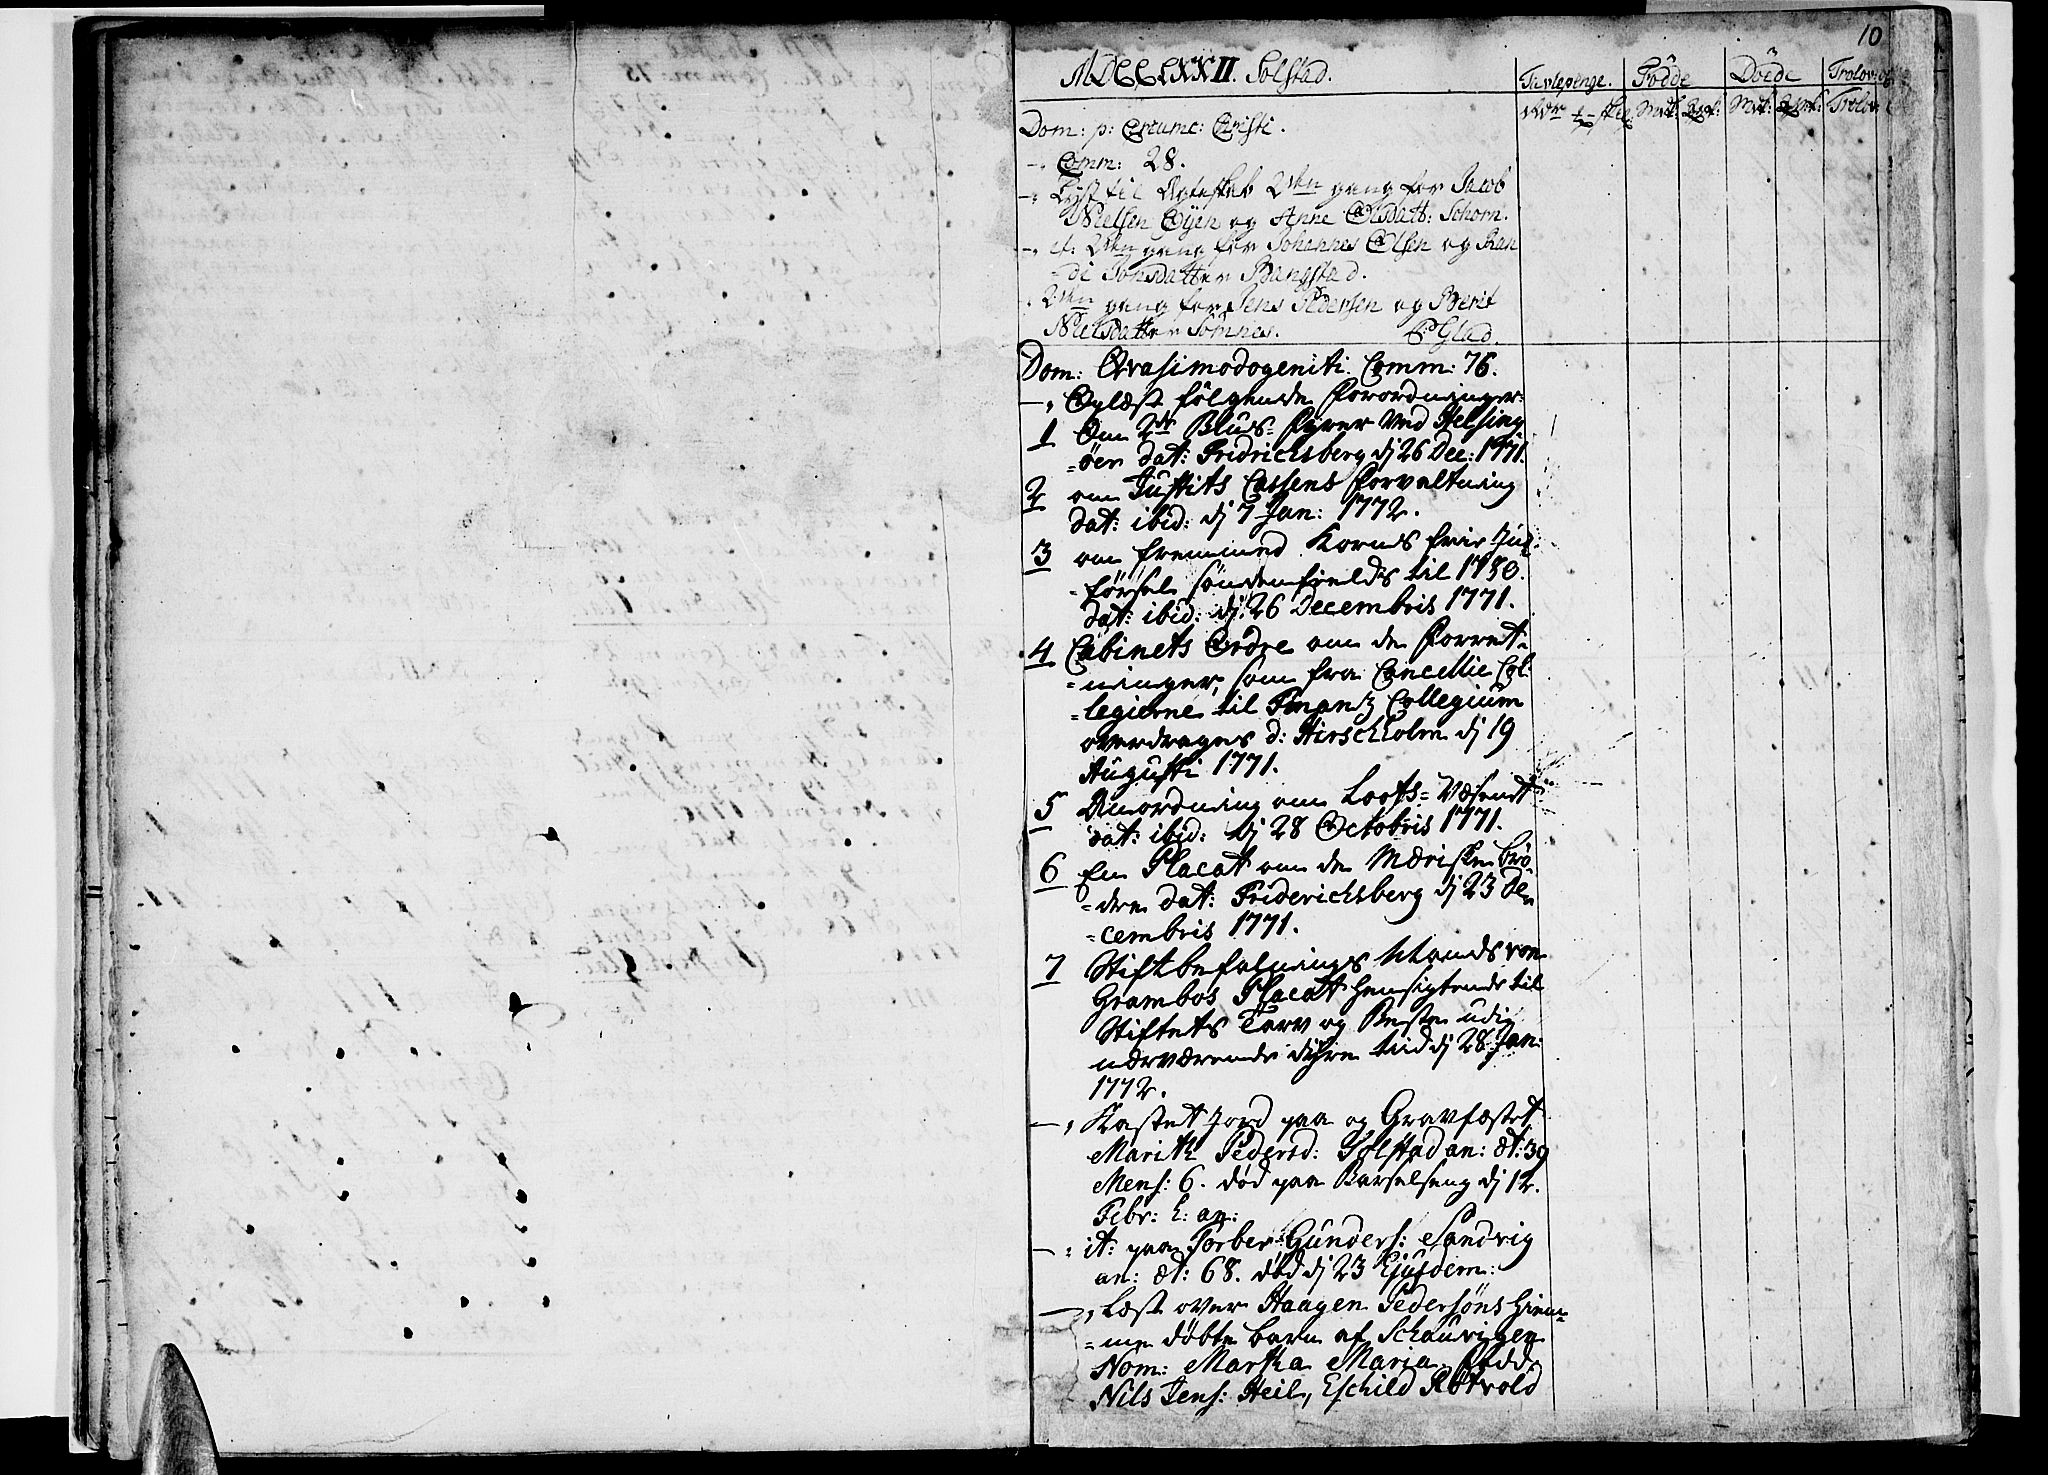 10
MDCCLXXII. Solstad.
Tavlepenge. Födde Döede Trolov: og
Mk: Qvk: Mk: Qvk: Trolov
Dom: p: Circumc: Christi.
-, Comm: 28.
-, Lyst til Ægteskab 2den gang for Jacob
Nielsen Öyen og Anne Olsdatt: Schorn.
-, it: 2den gang for Johannes Olsen og Ran
=di Jonsdatter Bangstad.
2den gang for Jens Pedersen og Berit
Nielsdatter Somnes. P: Glad.
Dom: Qvasimodogeniti. Comm: 76.
-, Oplæst fölgende Forordninger:
1 Om 2de Blus-Fyrer ved Helsing
=öer dat: Fridrichsberg dj 26 Dec: 1771.
2 om Justits Cassens Forvaltning
dat: ibid: dj 7 Jan: 1772.
3 om fremmed Korns frie Ind-
=försel söndenfields til 1780.
dat: ibid: dj. 26 Decembris 1771.
4 Cabinets Ordre om de Forret-
=ninger, som fra Cancellie Col-
=legierne til Finantz Collegium
overdrages d: Hirschholm dj 19
Augusti 1771.
5 Anordning om Loots-Væsendt
dat: ibid: dj 28 Octobris 1771.
6 En Placat om de Mæriske Brö-
=dre dat: Friderichsberg dj 23 De
=cembris 1771.
7 Stiftbefalnings Mands von
Grambos Placat hensigtende til
Stiftets Tarv og Beste udi
nærværende dÿhre tiid dj 28 Jan:
1772.
-, Kastet Jord paa og Gravfæstet
Marith Pedersd: Solstad an: æt: 39
Mens: 6. död paa Barselseng dj 12.
Febr: h: an:
-, it: paa Torber Gunders: Sandvig
an: æt: 68. död dj 23 Ejusdem:
-, Læst over Haagen Pedersöns hiem-
=me döbte barn af Schauvigen
Nom: Martha Maria. Fadd:
Nils Jens: Heil, Eschild Rötvold